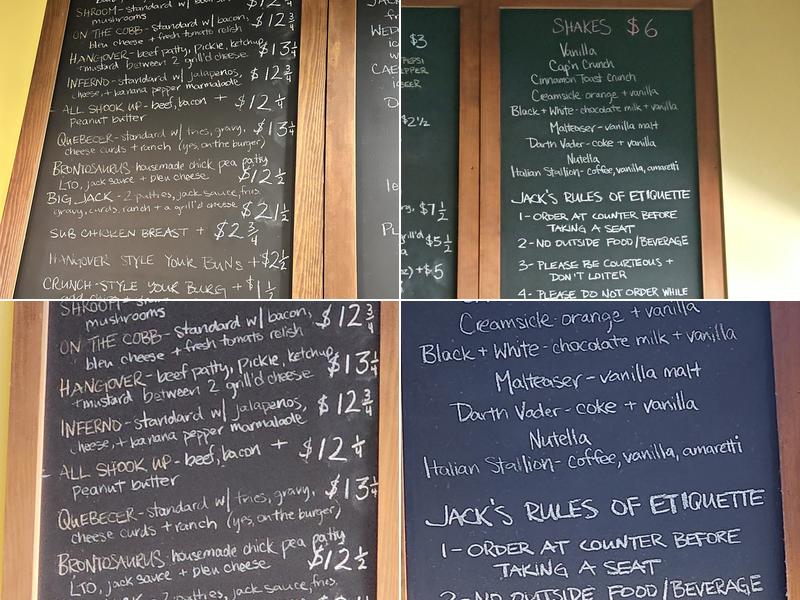 SHROOM- standard w/
mushrooms
ON THE COBB- standard w/ bacon, $12 3/4
bleu cheese + fresh tomato relish
HANGOVER- beef patty, Pickie, ketchup, $13 1/4
+mustard between 2 grill'd cheese
INFERNO- standard w/ jalapenos, $12 3/4
cheese, + banana pepper marmalade
ALL SHOOK UP- beef, bacon + $12 1/4
Peanut butter
QUEBECER- standard w/ fries, gravy, $13 1/4
cheese curds + ranch (yes, on the burger)
BRONTOSAURUS housemade chick pea patty
LTO, jack sauce + bleu cheese $12 1/2
BIG JACK- 2 patties, jack sauce, fries,
gravy, curds, ranch + a grill'd cheese $21 1/2
SUB CHICKEN BREAST + $2 3/4
HANGOVER STYLE YOUR BUNS +$2 1/2
CRUNCH-STYLE YOUR BURG +$1 1/2
$3
PEPSI
$2 1/2
$7 1/2
grill'd $5 1/2
+$.5
SHAKES $6
Vanilla
Cap'n Crunch
Cinnamon Toast Crunch
Creamsicle orange + vanilla
Black + White- chocolate milk + vanilla
Malteaser- vanilla malt
Darth Vader- coke + vanilla
Nutella
Italian Stallion- coffee, vanilla, amaretti
JACK'S RULES OF ETIQUETTE
1- ORDER AT COUNTER BEFORE
TAKING A SEAT
2- NO OUTSIDE FOOD/BEVERAGE
3- PLEASE BE COURTEOUS +
DON'T LOITER
4- PLEASE DO NOT ORDER WHILE
SHROOM- standard w/
mushrooms $12 3/4
ON THE COBB- standard w/ bacon,
bleu cheese + fresh tomato relish
HANGOVER- beef patty, Pickie, ketchup, $13 1/4
+mustard between 2 grill'd cheese
INFERNO- standard w/ jalapenos, $12 3/4
cheese, + banana pepper marmalade
ALL SHOOK UP- beef, bacon + $12 1/4
Peanut butter
QUEBECER- standard w/ fries, gravy, $13 1/4
cheese curds + ranch (yes, on the burger)
BRONTOSAURUS housemade chick pea patty
LTO, jack sauce + bleu cheese $12 1/2
2 patties, jack sauce, fries,
Creamsicle- orange + vanilla
Black + White- chocolate milk + vanilla
Malteaser- vanilla malt
Darth Vader- coke + vanilla
Nutella
Italian Stallion- coffee, vanilla, amaretti
JACK'S RULES OF ETIQUETTE
1- ORDER AT COUNTER BEFORE
TAKING A SEAT
2- NO OUTSIDE FOOD/BEVERAGE